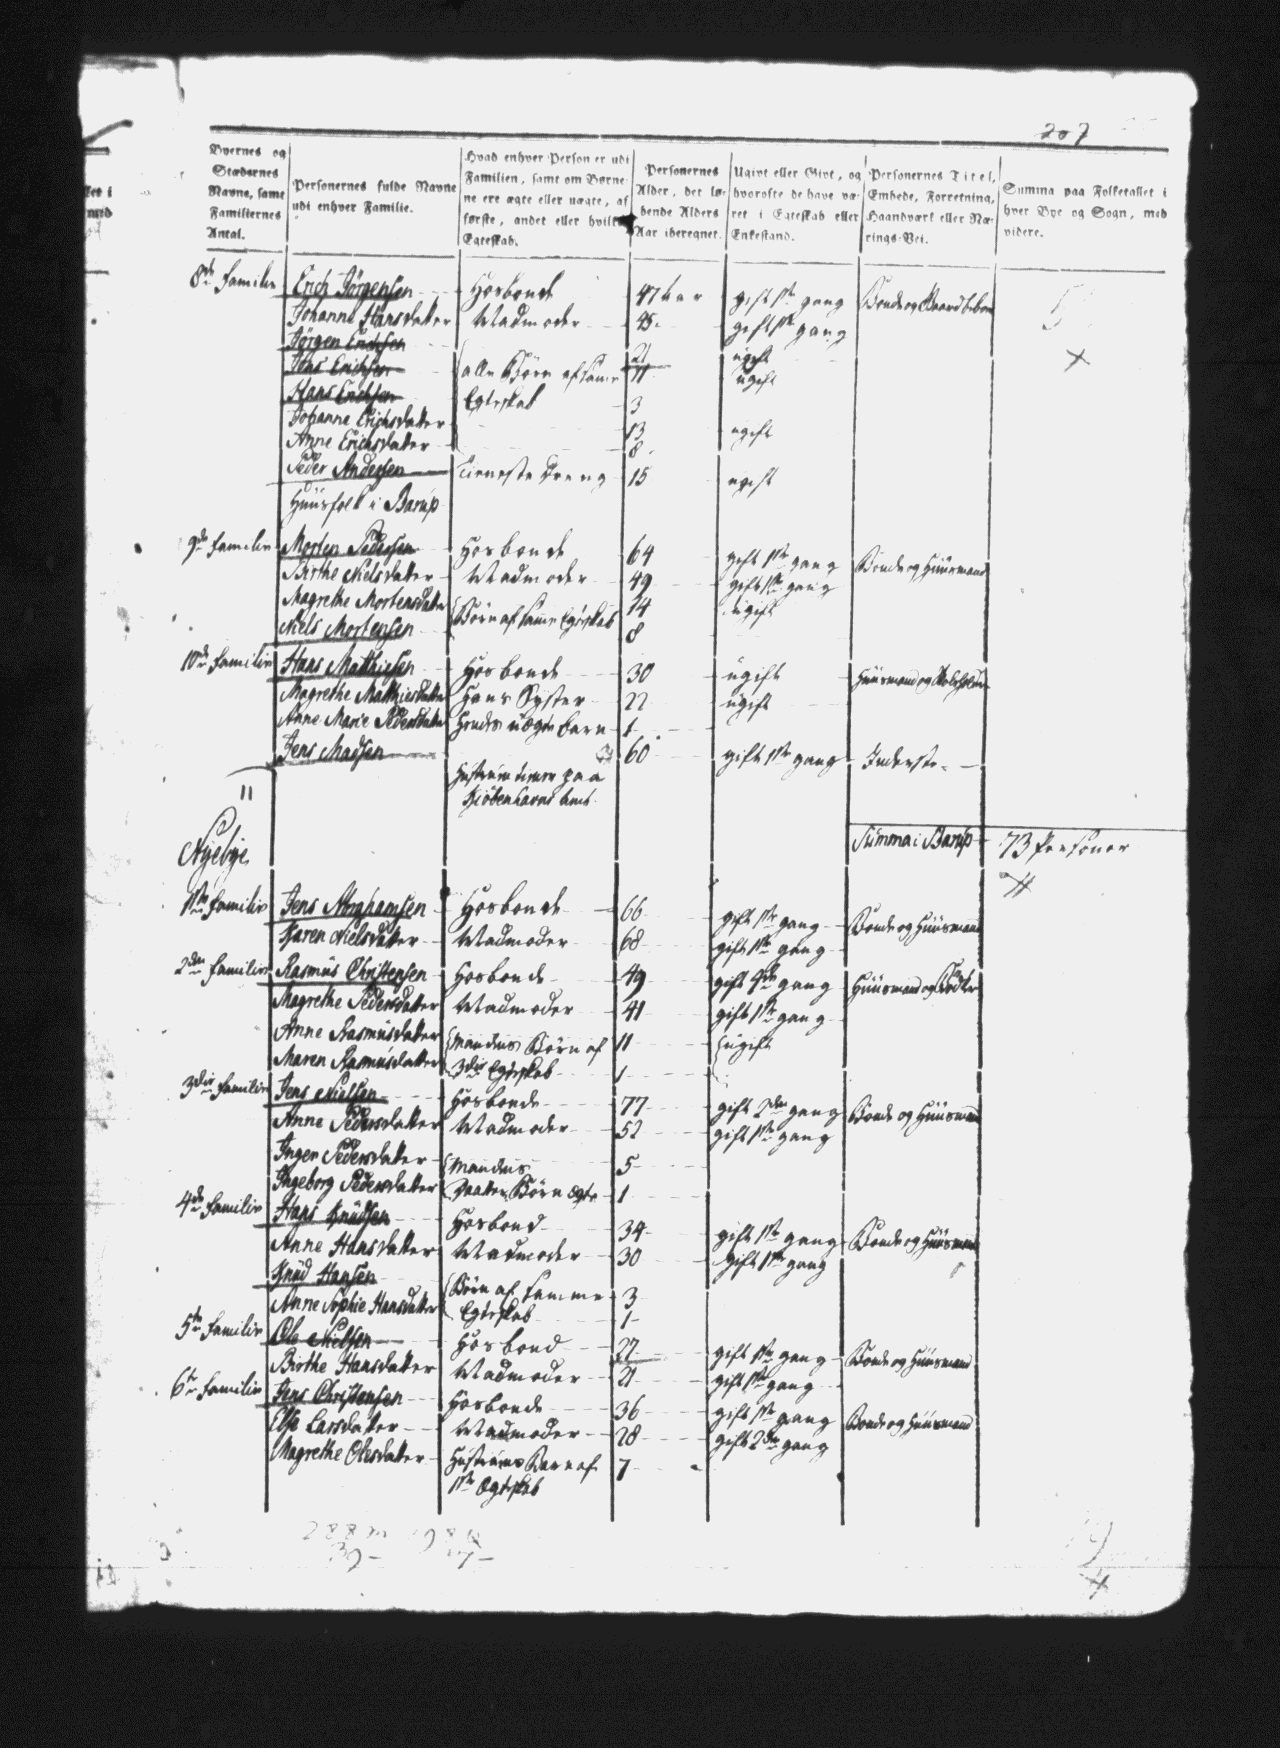 207
Byernes og Stædernes Navne, samt Familiernes Antal.
Personernes fulde Navne udi enhver Familie.
Hvad enhver Person er udi Familien, samt om Børnene ere ægte eller uægte, af første, andet eller hvilket Egteskab.
Personernes Alder, det løbende Alders Aar iberegnet.
Ugivt eller Givt, og hvorofte de have været i Egteskab eller Enkestand.
Personernes Titel, Embede, Forretning, Haandværk eller Nærings-Vei.
Summa paa Folketallet i hver Bye og Sogn, med videre.
8de Familie Erich Jörgensen Hosbonde 47 gift 1ste gang
Johanne Hansdatter Madmoder 45 gift 1ste gang
Jörgen Erichsen 21 ugift
Jens Erichsen alle Börn af samme 11 ugift
Hans Erichsen Egteskab 3
Johanne Erichsdatter 13 ugift
Anne Erichsdatter 8
Peder Andersen Tieneste Dreng 15 ugift
Huusfolk i Barup
9de Familie Morten Pedersen Hosbonde 64 gift 1ste gang Bonde og Huusmand
Birthe Nielsdatter Madmoder 49 gift 1ste gang
Magrethe Mortensdatter Börn af samme Egteskab 14 ugift
Niels Mortensen 8
10de Familie Hans Mathiesen Hosbonde 30 ugift
Magrethe Matthiesdatter Hans Syster 22 ugift
Anne Marie Pedersdatter Hendes uægte barn 1
Jens Madsen 60 gift 1ste gang Inderste
Hustruen tienner paa
Kiöbenhavns
11
Summa i Barup 73 Personer
Nyebye
1ste Familie Jens Abrahamsen Hosbonde 66 gift 1ste gang Bonde og Huusmand
Karen Nielsdatter Madmoder 68 gift 1ste gang
2den Familie Rasmus Christensen Hosbonde 49 gang Huusmand og
Magrethe Pedersdatter Madmoder 41 gift 1ste gang
Anne Rasmusdatter Mandens Börn af 11 ugift
Maren Rasmusdatter 3die Egteskab 1
3die Familie Jens Nielsen Hosbonde 77 gift 2den gang Bonde og Huusmand
Anne Pedersdatter Madmoder 52 gift 1ste gang
Inger Pedersdatter Mandens 5
Ingeborg Pedersdatter Daatter Börn 1
4de Familie Hans Knudsen Hosbond 34 gift 1ste gang Bonde og Huusmand
Anne Hansdatter Madmoder 30 gift 1ste gang
Knud Hansen Börn af samme 3
Anne Sophie Hansdatter Egteskab 1
5te Familie Ole Nielsen Hosbond 27 gift 1ste gang Bonde og Huusmand
Birthe Hansdatter Madmoder 21 gift 1ste gang
6te Familie Jens Christensen Hosbonde 36 gift 1ste gang Bonde og Huusmand
Else Larsdatter Madmoder 28 gift 2den gang
Magrethe Olesdatter Hustruens Barn af 7
1ste Egteskab